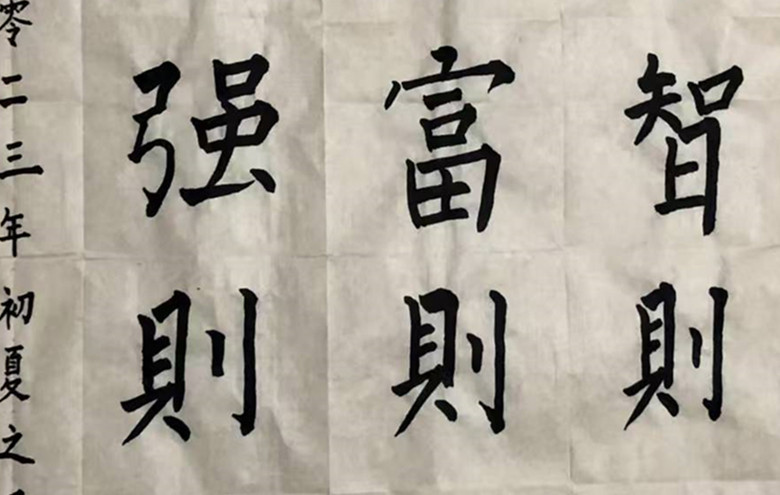 智則
富則
强則
零二三年初夏之